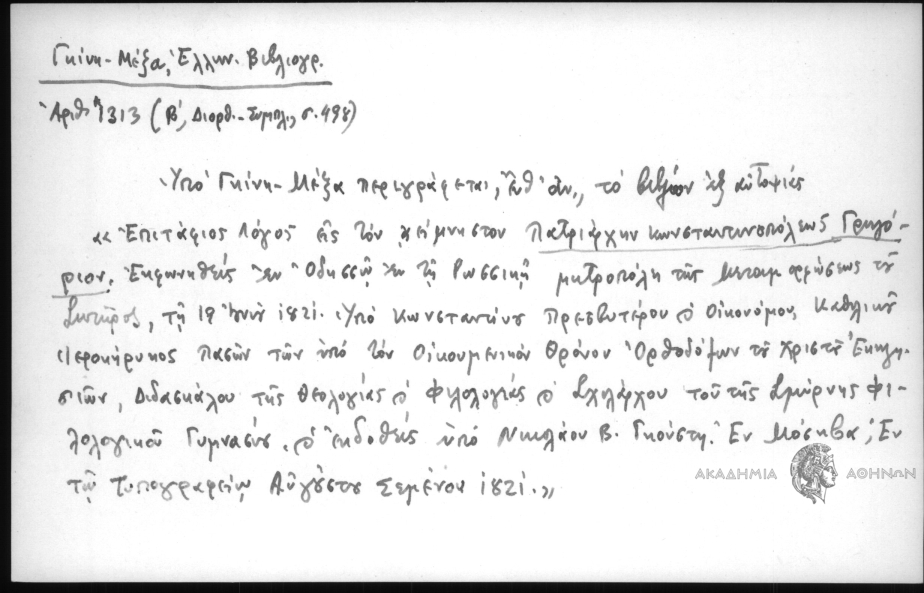 Γκίνη-Μέξα, Ἑλλην. Βιβλιογρ.
Ἀριθ. 1313 (Β', Διορθ.-Συμπλ., σ. 498)
Ὑπό Γκίνη-Μέξα περιγράφεται, ἔνθ' ἀν., τό βιβλίον ἐξ αὐτοψίας
«Ἐπιτάφιος Λόγος εἰς τόν ἀείμνηστον Πατριάρχην Κωνσταντινοπόλεως Γρηγό-
ριον, Ἐκφωνηθείς ἐν Ὀδησσῷ ἐν τῇ Ρωσσικῇ μητροπόλη τῆς Μεταμορφώσεως τοῦ
Σωτῆρος, τῇ 19 Ἰουν 1821. Ὑπό Κωνσταντίνου Πρεσβυτέρου ϗ Οἰκονόμου, Καθολικοῦ
Ἱεροκήρυκος Πασῶν τῶν ὑπό τόν Οἰκουμενικόν Θρόνον Ὀρθοδόξων τοῦ Χριστοῦ Ἐκκλη-
σιῶν, Διδασκάλου τῆς Θεολογίας ϗ Φιλολογίας ϗ Σχολάρχου τοῦ τῆς Σμύρνης Φι-
λολογικοῦ Γυμνασίου, ϗ ἐκδοθείς ὑπό Νικολάου Β. Γκούστη. Ἐν Μόσκβᾳ, Ἐν
τῷ Τυπογραφείῳ Αὐγούστου Σεμένου 1821.»
ΑΚΑΔΗΜΙΑ ΑΘΗΝΩΝ